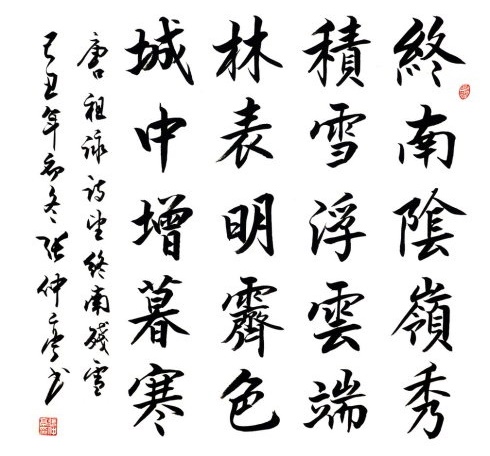 終南陰嶺秀
積雪浮雲端
林表明霽色
城中增暮寒
唐祖詠詩望終南殘雪
己丑年初冬張仲亭書